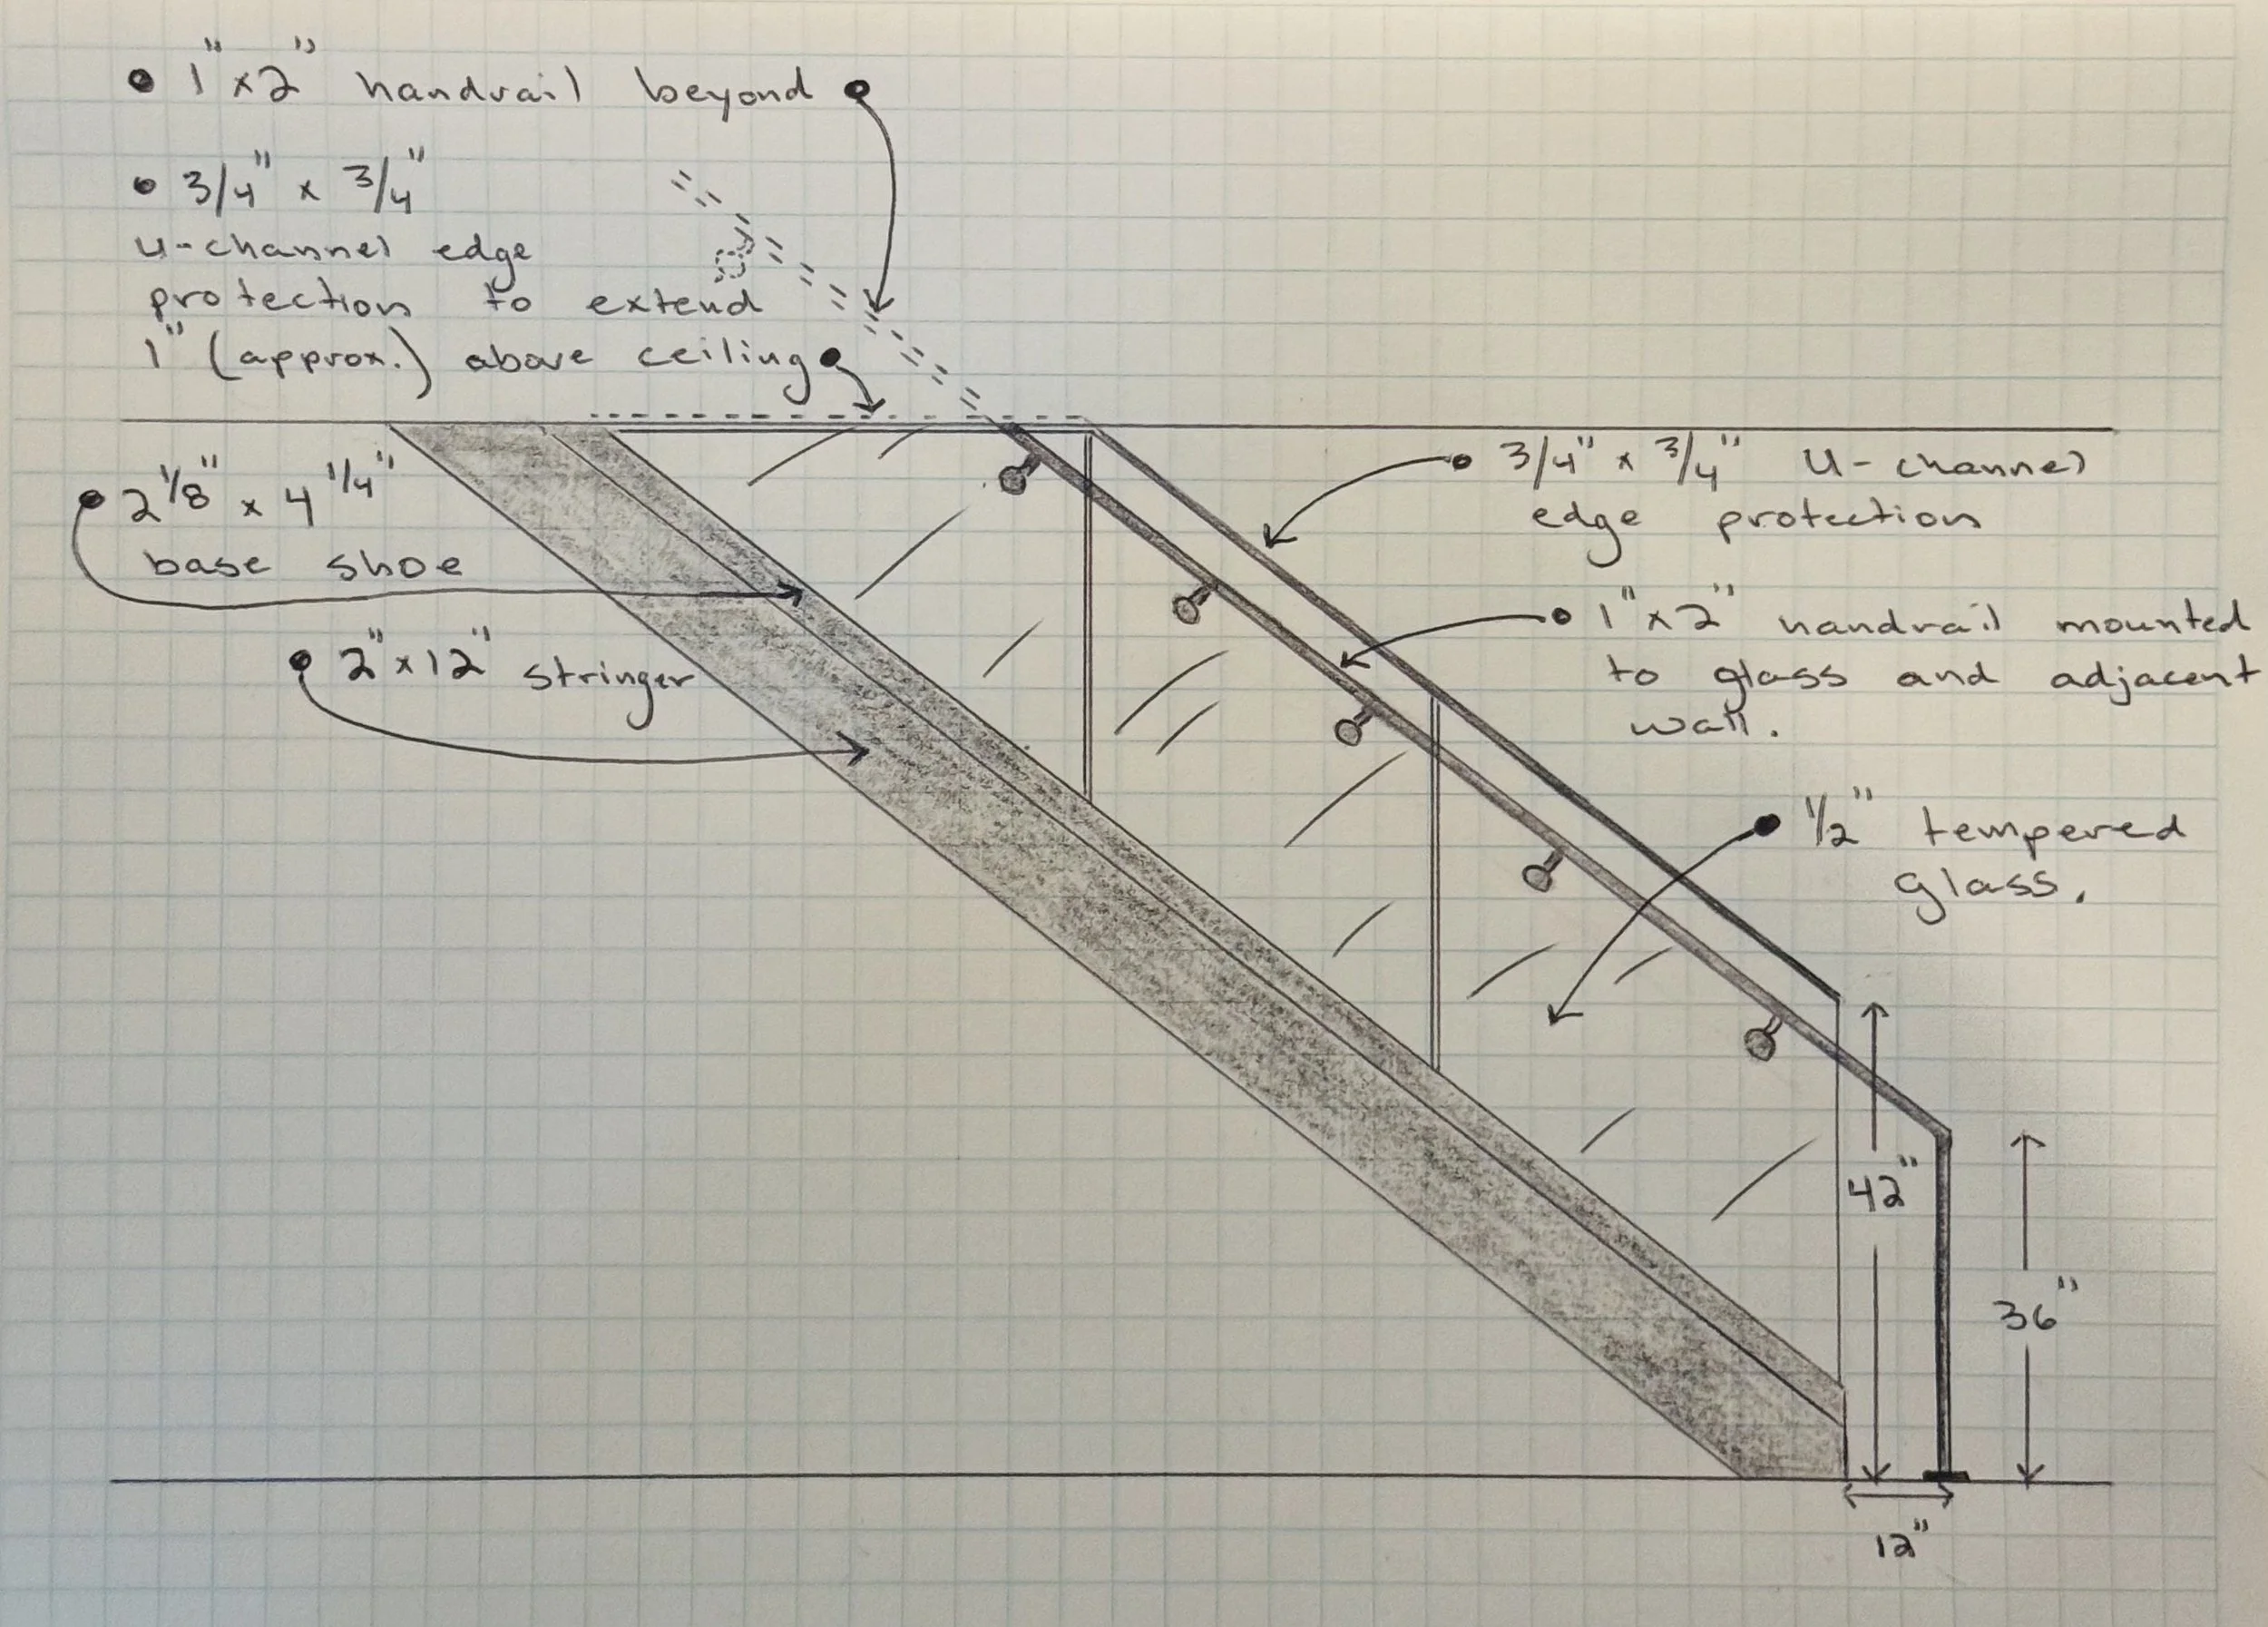 • 1" x 2" handrail beyond
• 3/4" x 3/4"
U-channel edge
protection to extend
1" (approx.) above ceiling
2 1/8" x 4 1/4"
base shoe
2" x 12" stringer
3/4" x 3/4" U-channel
edge protection
1" x 2" handrail mounted
to glass and adjacent
wall.
1/2" tempered
glass.
42"
36"
12"